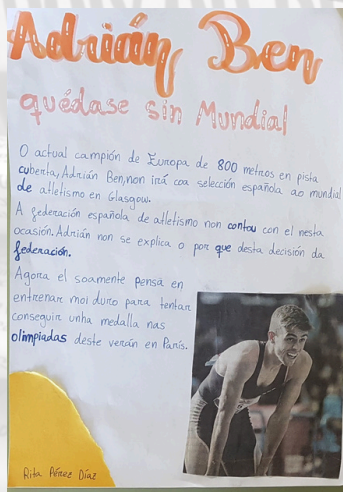 Adrián Ben
quédase sin Mundial
O actual campión de Europa de 800 metros en pista
cuberta, Adrián Ben, non irá coa selección española ao mundial
de atletismo en Glasgow.
A federación española de atletismo non contou con el nesta
ocasión. Adrián non se explica o por que desta decisión da
federación.
Agora el soamente pensa en
entrenar moi duro para tentar
conseguir unha medalla nas
olimpiadas deste verán en París.
Rita Pérez Díaz